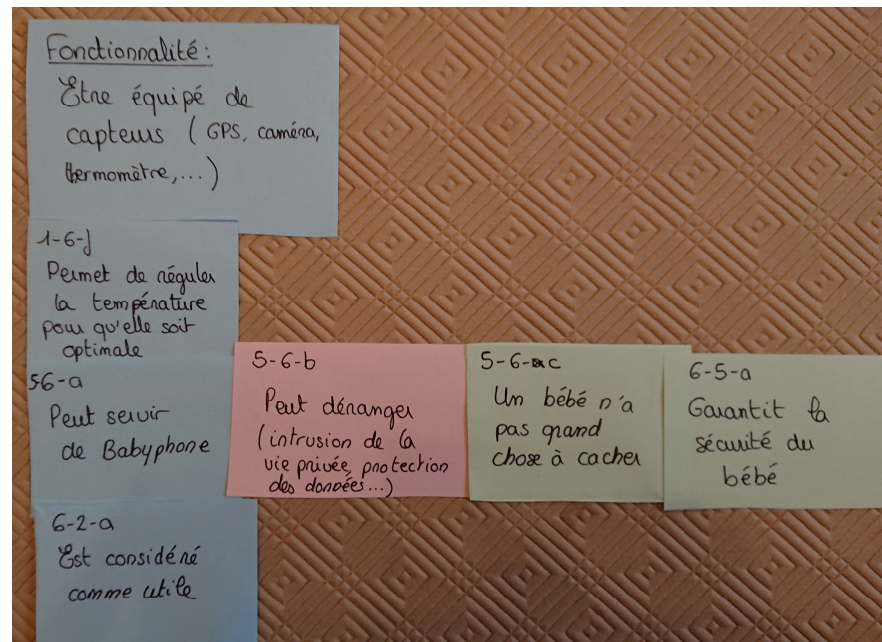 Fonctionnalité :
Etre équipé de
capteurs ( GPS, caméra,
thermomètre, ... )
1-6-j
Permet de réguler
la température
pour qu'elle soit
optimale
5-6-a
Peut servir
de Babyphone
5-6-b
Peut déranger
(intrusion de la
vie privée, protection
des données ...)
5-6-c
Un bébé n'a
pas grand
chose à cacher
6-5-a
Garantit la
sécurité du
bébé
6-2-a
Est considéré
comme utile